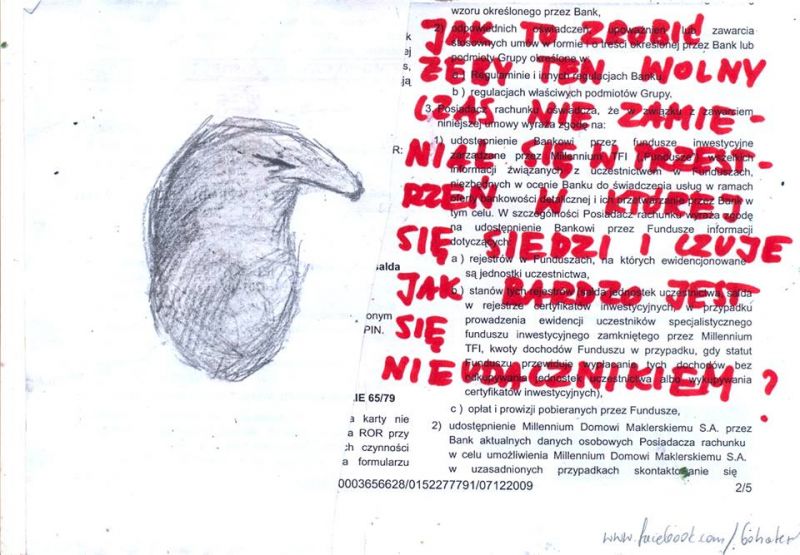 JAK TO ZROBIĆ
ŻEBY TEN WOLNY
CZAS NIE ZAMIE-
NIAŁ SIĘ W PRZEST-
RZEŃ W KTÓREJ
SIĘ SIEDZI I CZUJE
JAK BARDZO JEST
SIĘ
NIEUDACZNIKIEM?
wzoru określonego przez Bank,
2) odpowiednich oświadczeń, upoważnień lub zawarcia
stosownych umów w formie i o treści określonej przez Bank lub
podmioty Grupy określone w:
a ) Regulaminie i innych regulacjach Banku,
b ) regulacjach właściwych podmiotów Grupy.
3. Posiadacz rachunku oświadcza, że w związku z zawarciem
niniejszej umowy wyraża zgodę na:
1) udostępnienie Bankowi przez fundusze inwestycyjne
zarządzane przez Millennium TFI („Fundusze") wszelkich
informacji związanych z uczestnictwem w Funduszach,
niezbędnych w ocenie Banku do świadczenia usług w ramach
oferty bankowości detalicznej i ich przetwarzanie przez Bank w
tym celu. W szczególności Posiadacz rachunku wyraża zgodę
na udostępnienie Bankowi przez Fundusze informacji
dotyczących:
a ) rejestrów w Funduszach, na których ewidencjonowane
są jednostki uczestnictwa,
b ) stanów tych rejestrów (salda jednostek uczestnictwa, salda
w rejestrze certyfikatów inwestycyjnych), w przypadku
prowadzenia ewidencji uczestników specjalistycznego
funduszu inwestycyjnego zamkniętego przez Millennium
TFI, kwoty dochodów Funduszu w przypadku, gdy statut
Funduszu przewiduje wypłacanie tych dochodów bez
odkupywania jednostek uczestnictwa albo wykupywania
certyfikatów inwestycyjnych),
c ) opłat i prowizji pobieranych przez Fundusze,
2) udostępnienie Millennium Domowi Maklerskiemu S.A. przez
Bank aktualnych danych osobowych Posiadacza rachunku
w celu umożliwienia Millennium Domowi Maklerskiemu S.A.
w uzasadnionych przypadkach skontaktowanie się
R:
salda
onym
PIN.
IE 65/79
a karty nie
a ROR przy
ch czynności
a formularzu
0003656628/0152277791/07122009
2/5